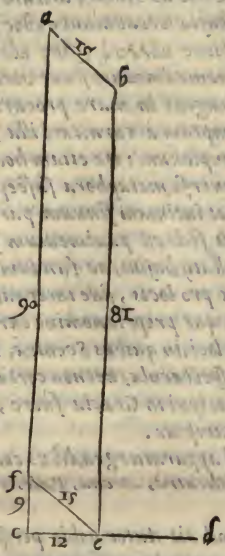 a
15
b
90
81
f.
15
9
c
12
e
d